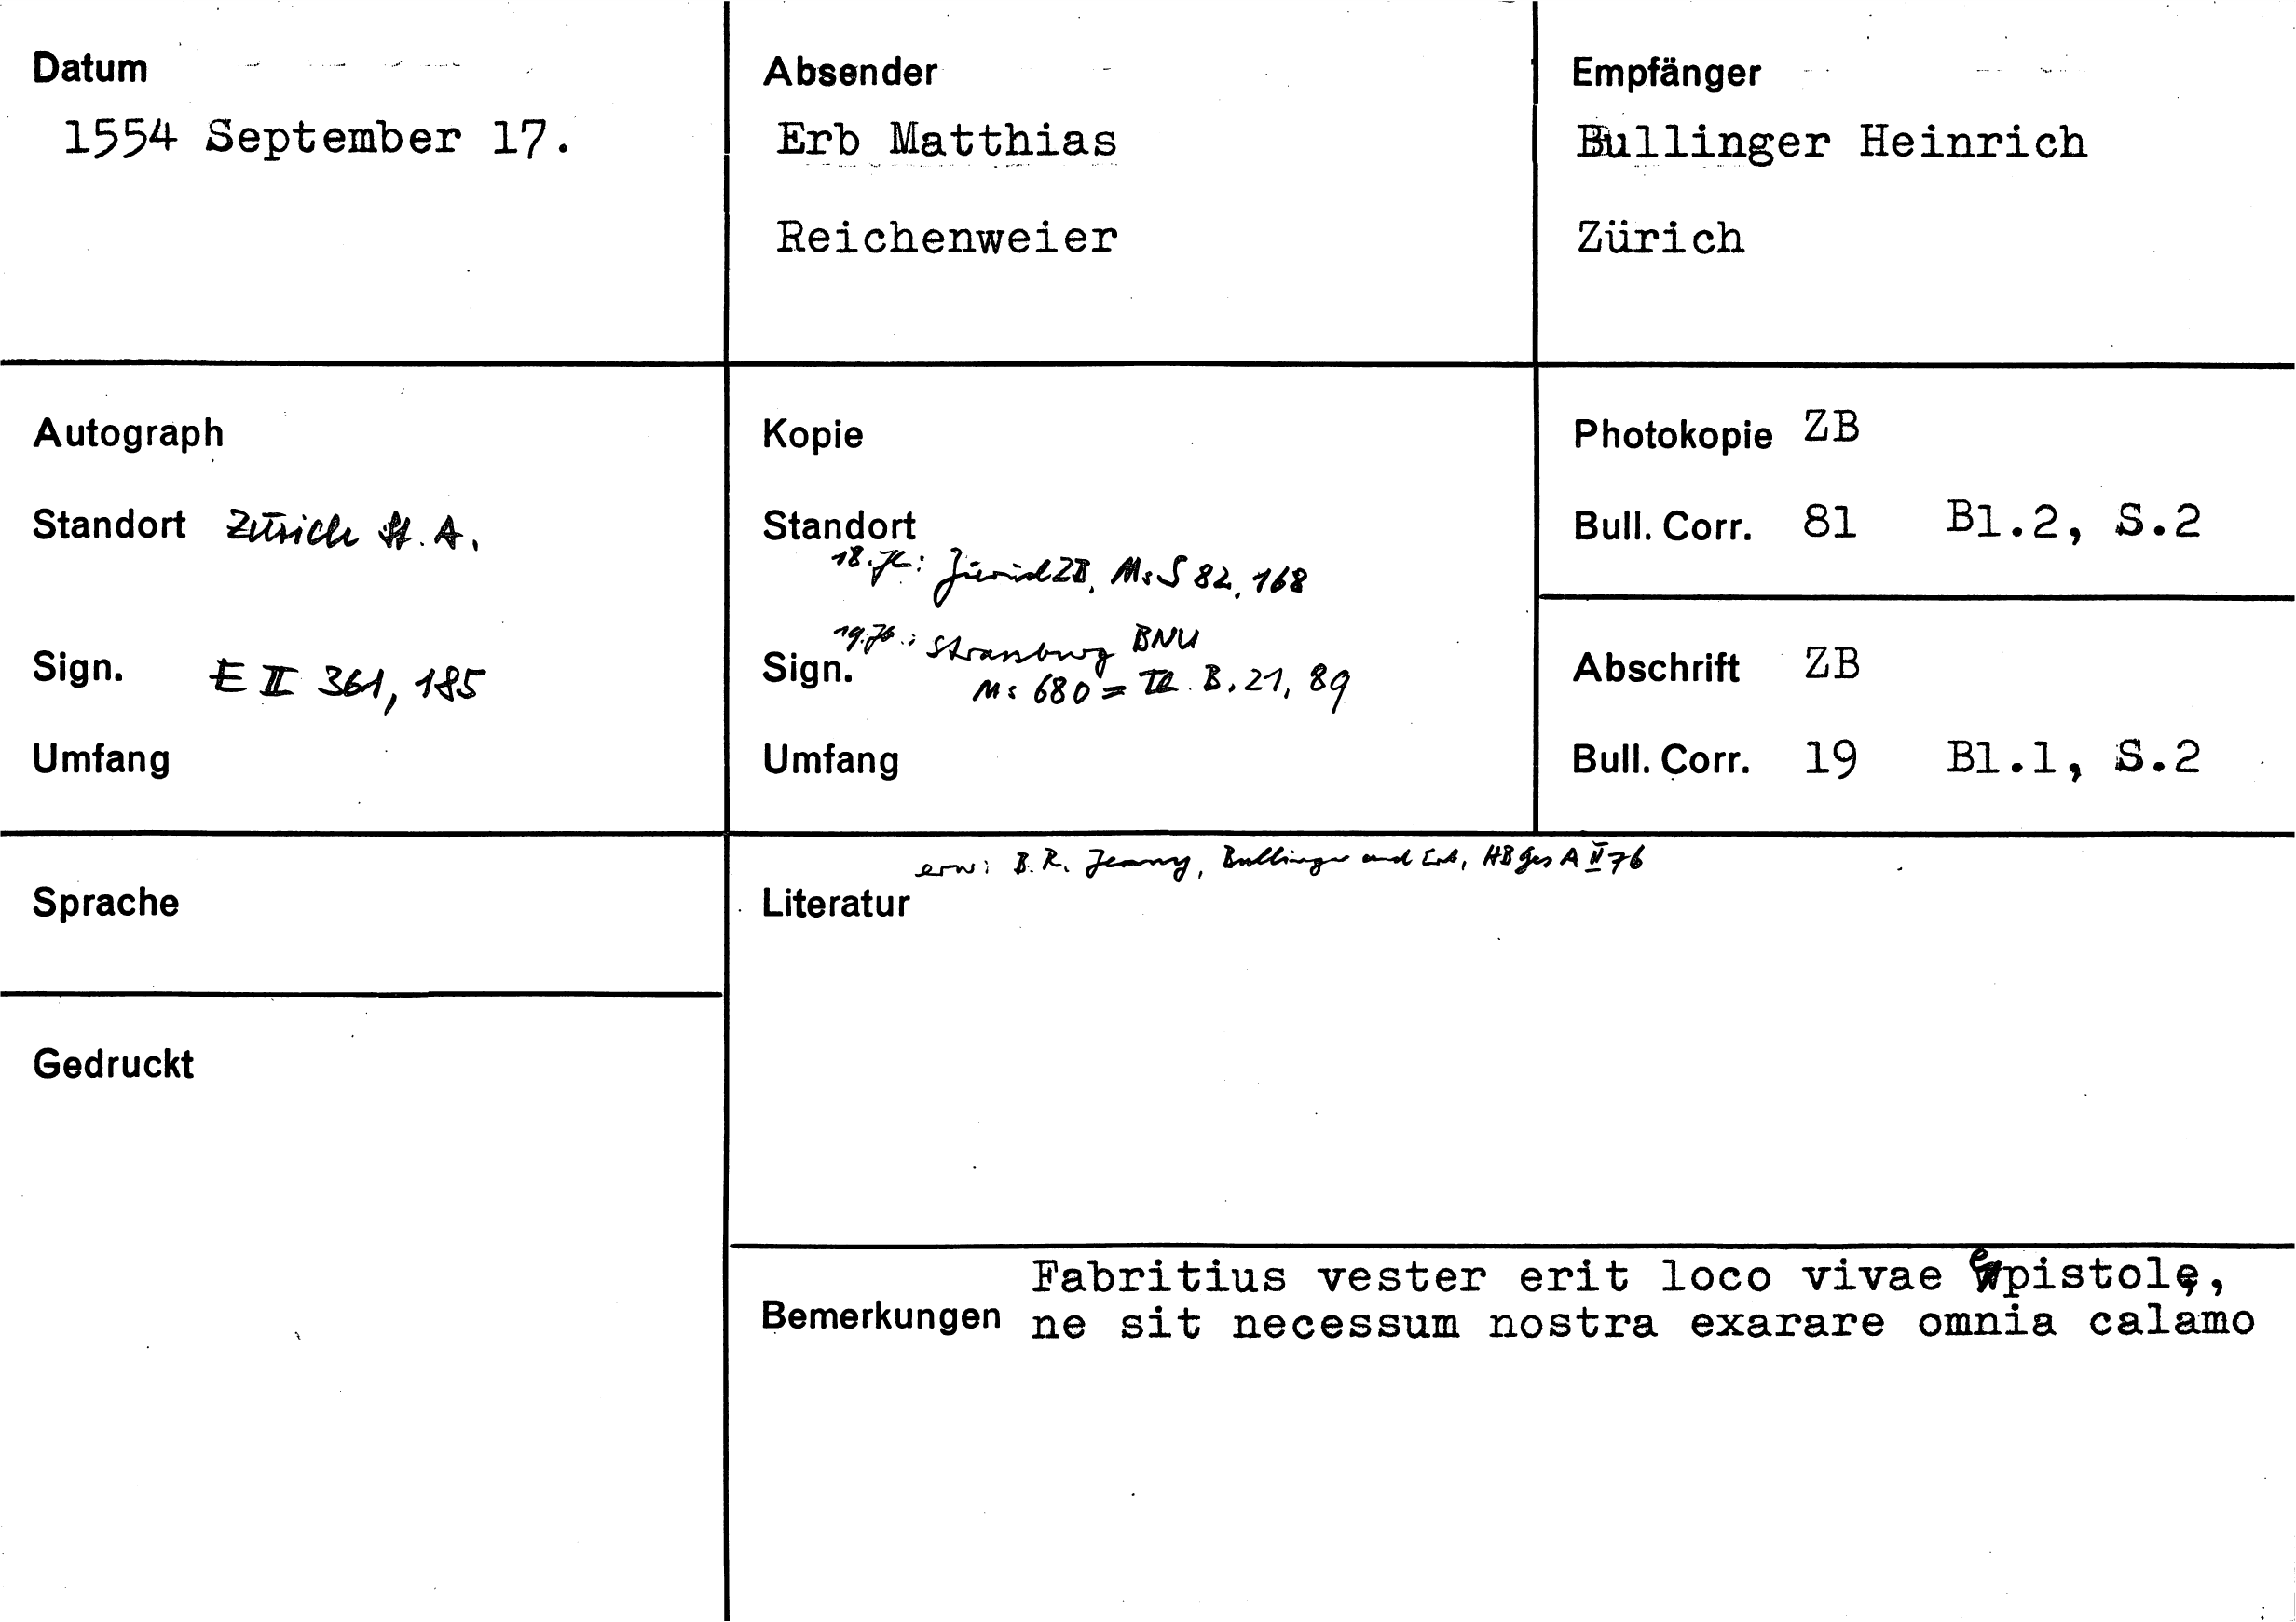 Datum
1554 September 17.
Absender
Erb Matthias
Reichenweier
Empfänger
Bullinger Heinrich
Zürich
Autograph
Standort Zürich St. A.
Sign. E II 361, 185
Umfang
Kopie
Standort
18. Jh: Zürich ZB, Ms S 82, 168
19. Jh.: Strassburg BNU
Sign. Ms 680 = B. 21, 89
Umfang
Photokopie ZB
Bull. Corr. 81 Bl.2, S.2
Abschrift ZB
Bull. Corr. 19 Bl.1, S.2
Sprache
Gedruckt
erw: B. R. Jenny, Bullinger und Erb, HB Ges A II 76
Literatur
Fabritius vester erit loco vivae epistolę,
Bemerkungen ne sit necessum nostra exarare omnia calamo